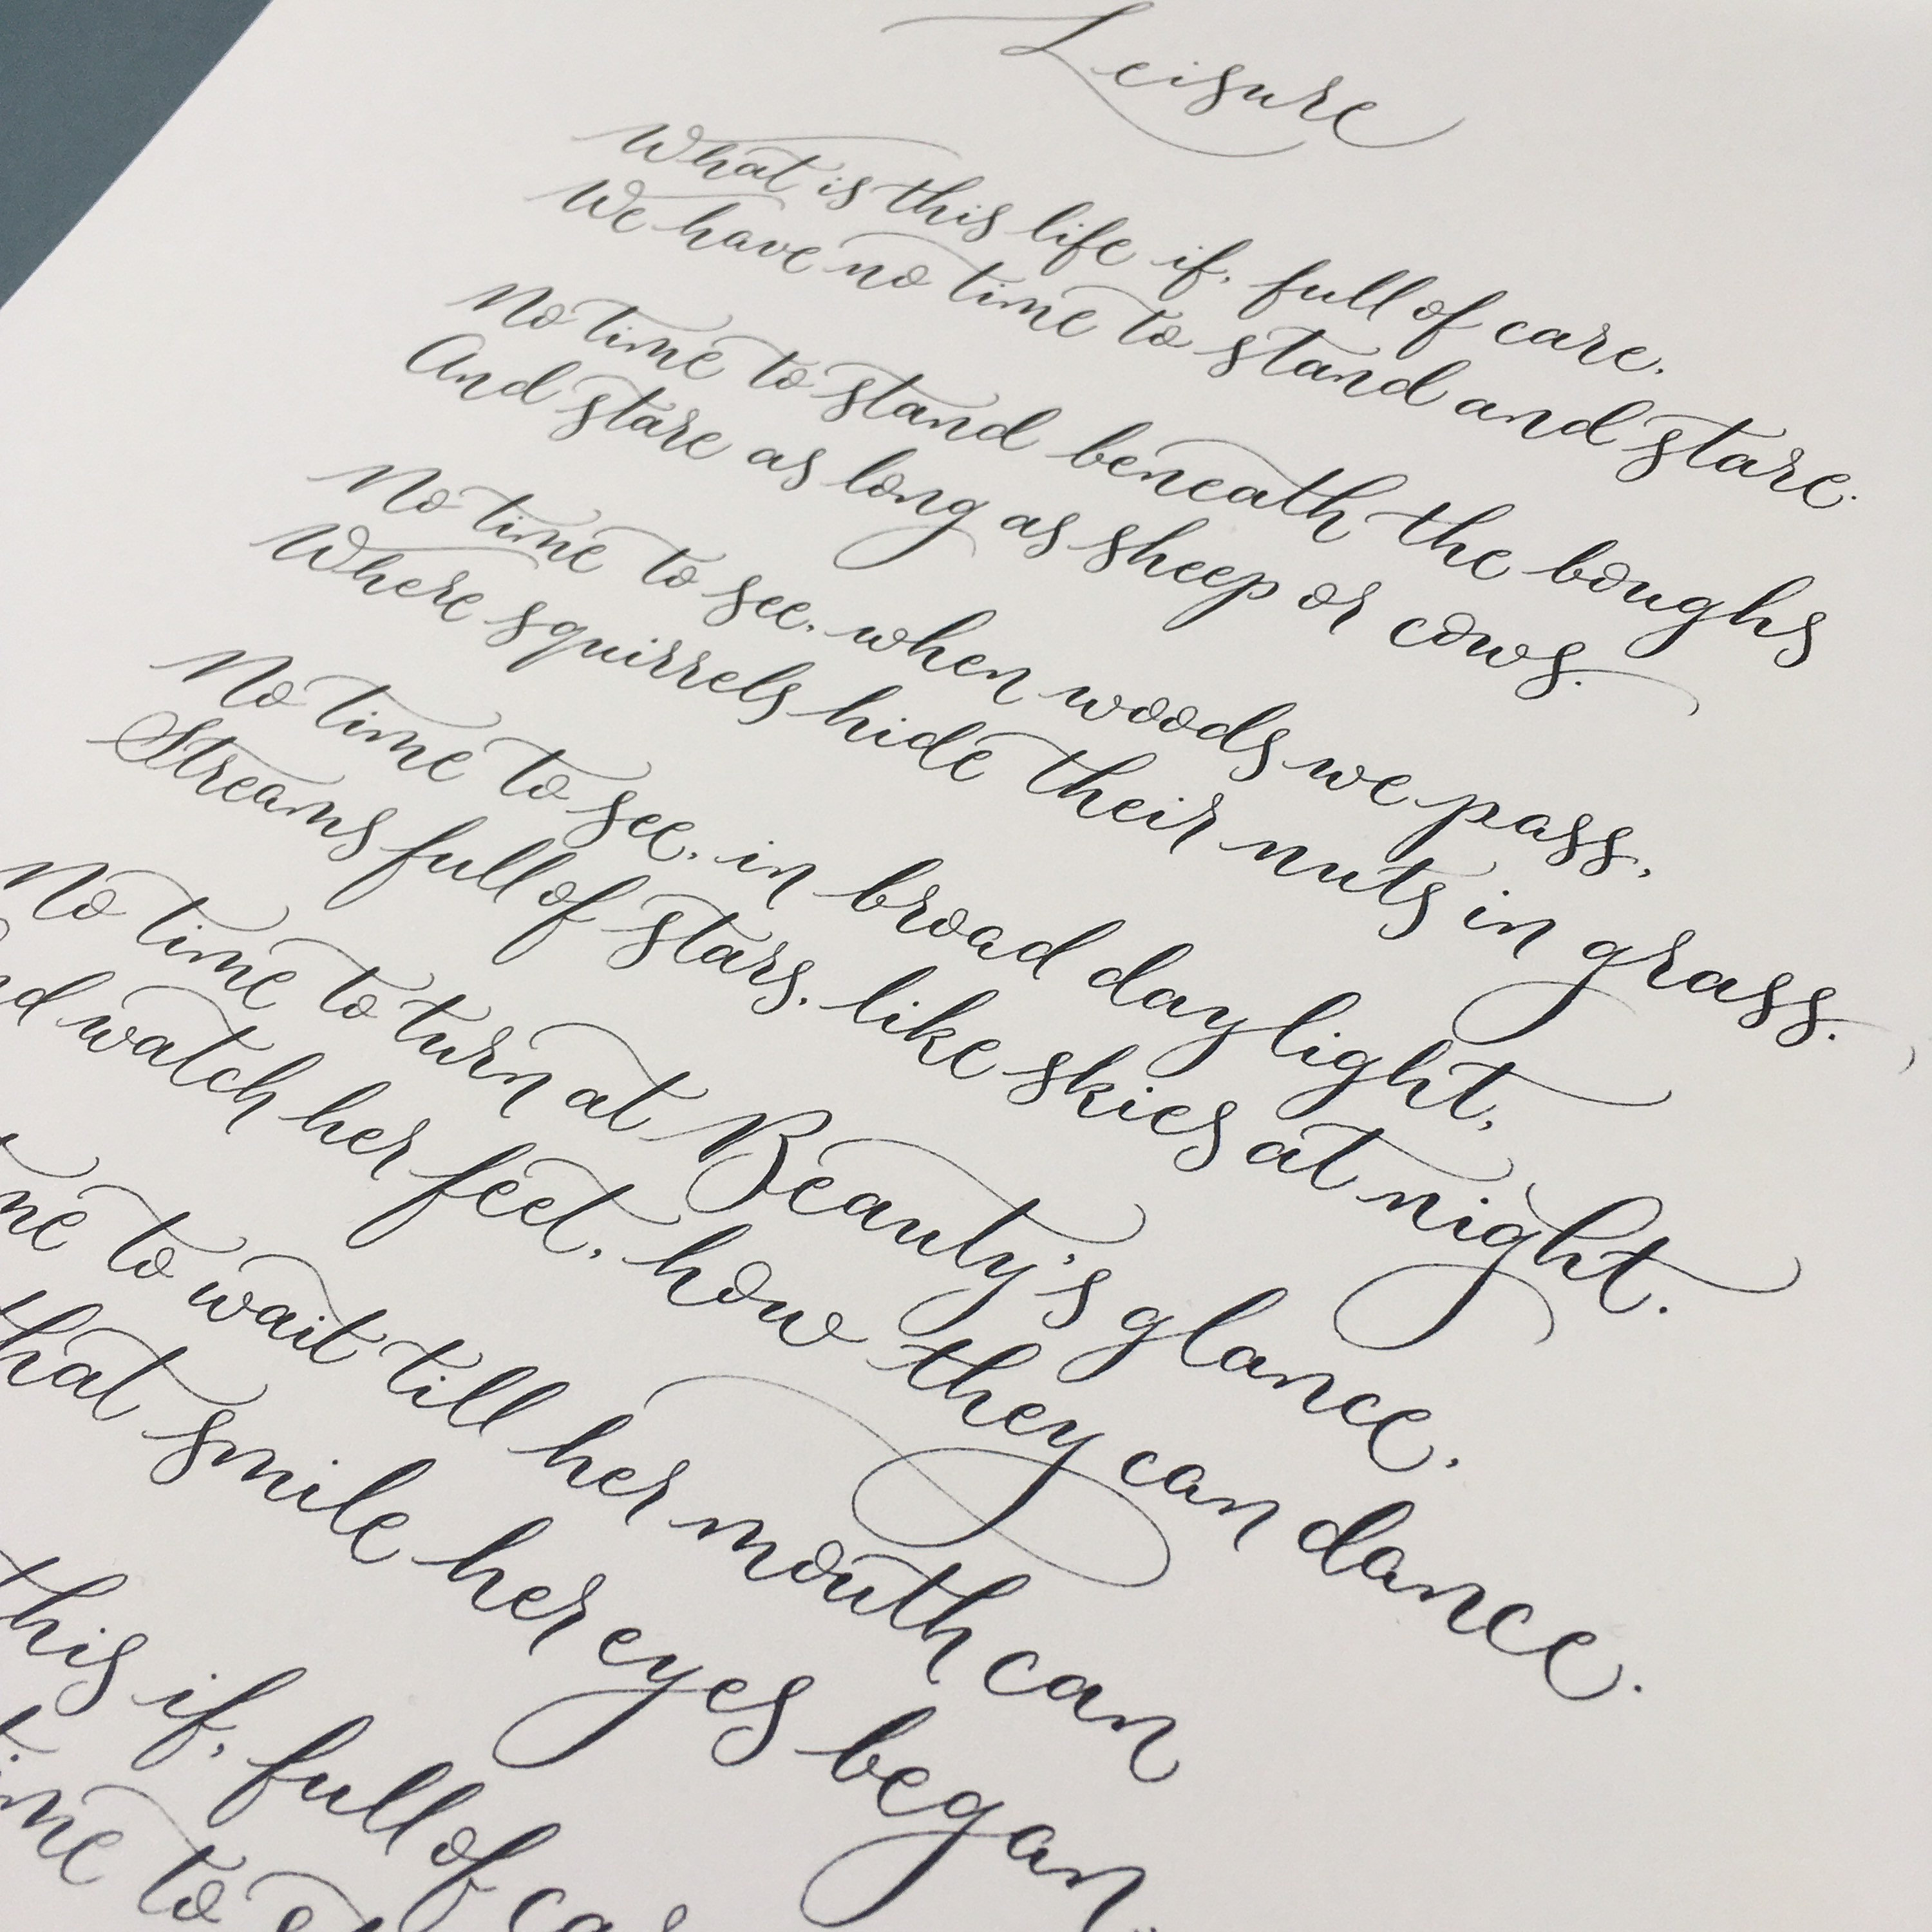 Leisure
What is this life if, full of care,
We have no time to stand and stare.
No time to stand beneath the boughs
And stare as long as sheep or cows.
No time to see, when woods we pass,
Where squirrels hide their nuts in grass.
No time to see, in broad daylight,
Streams full of stars, like skies at night.
No time to turn at Beauty's glance,
nd watch her feet, how they can dance.
me to wait till her mouth can
that smile her eyes began.
this if, full of ca
time to